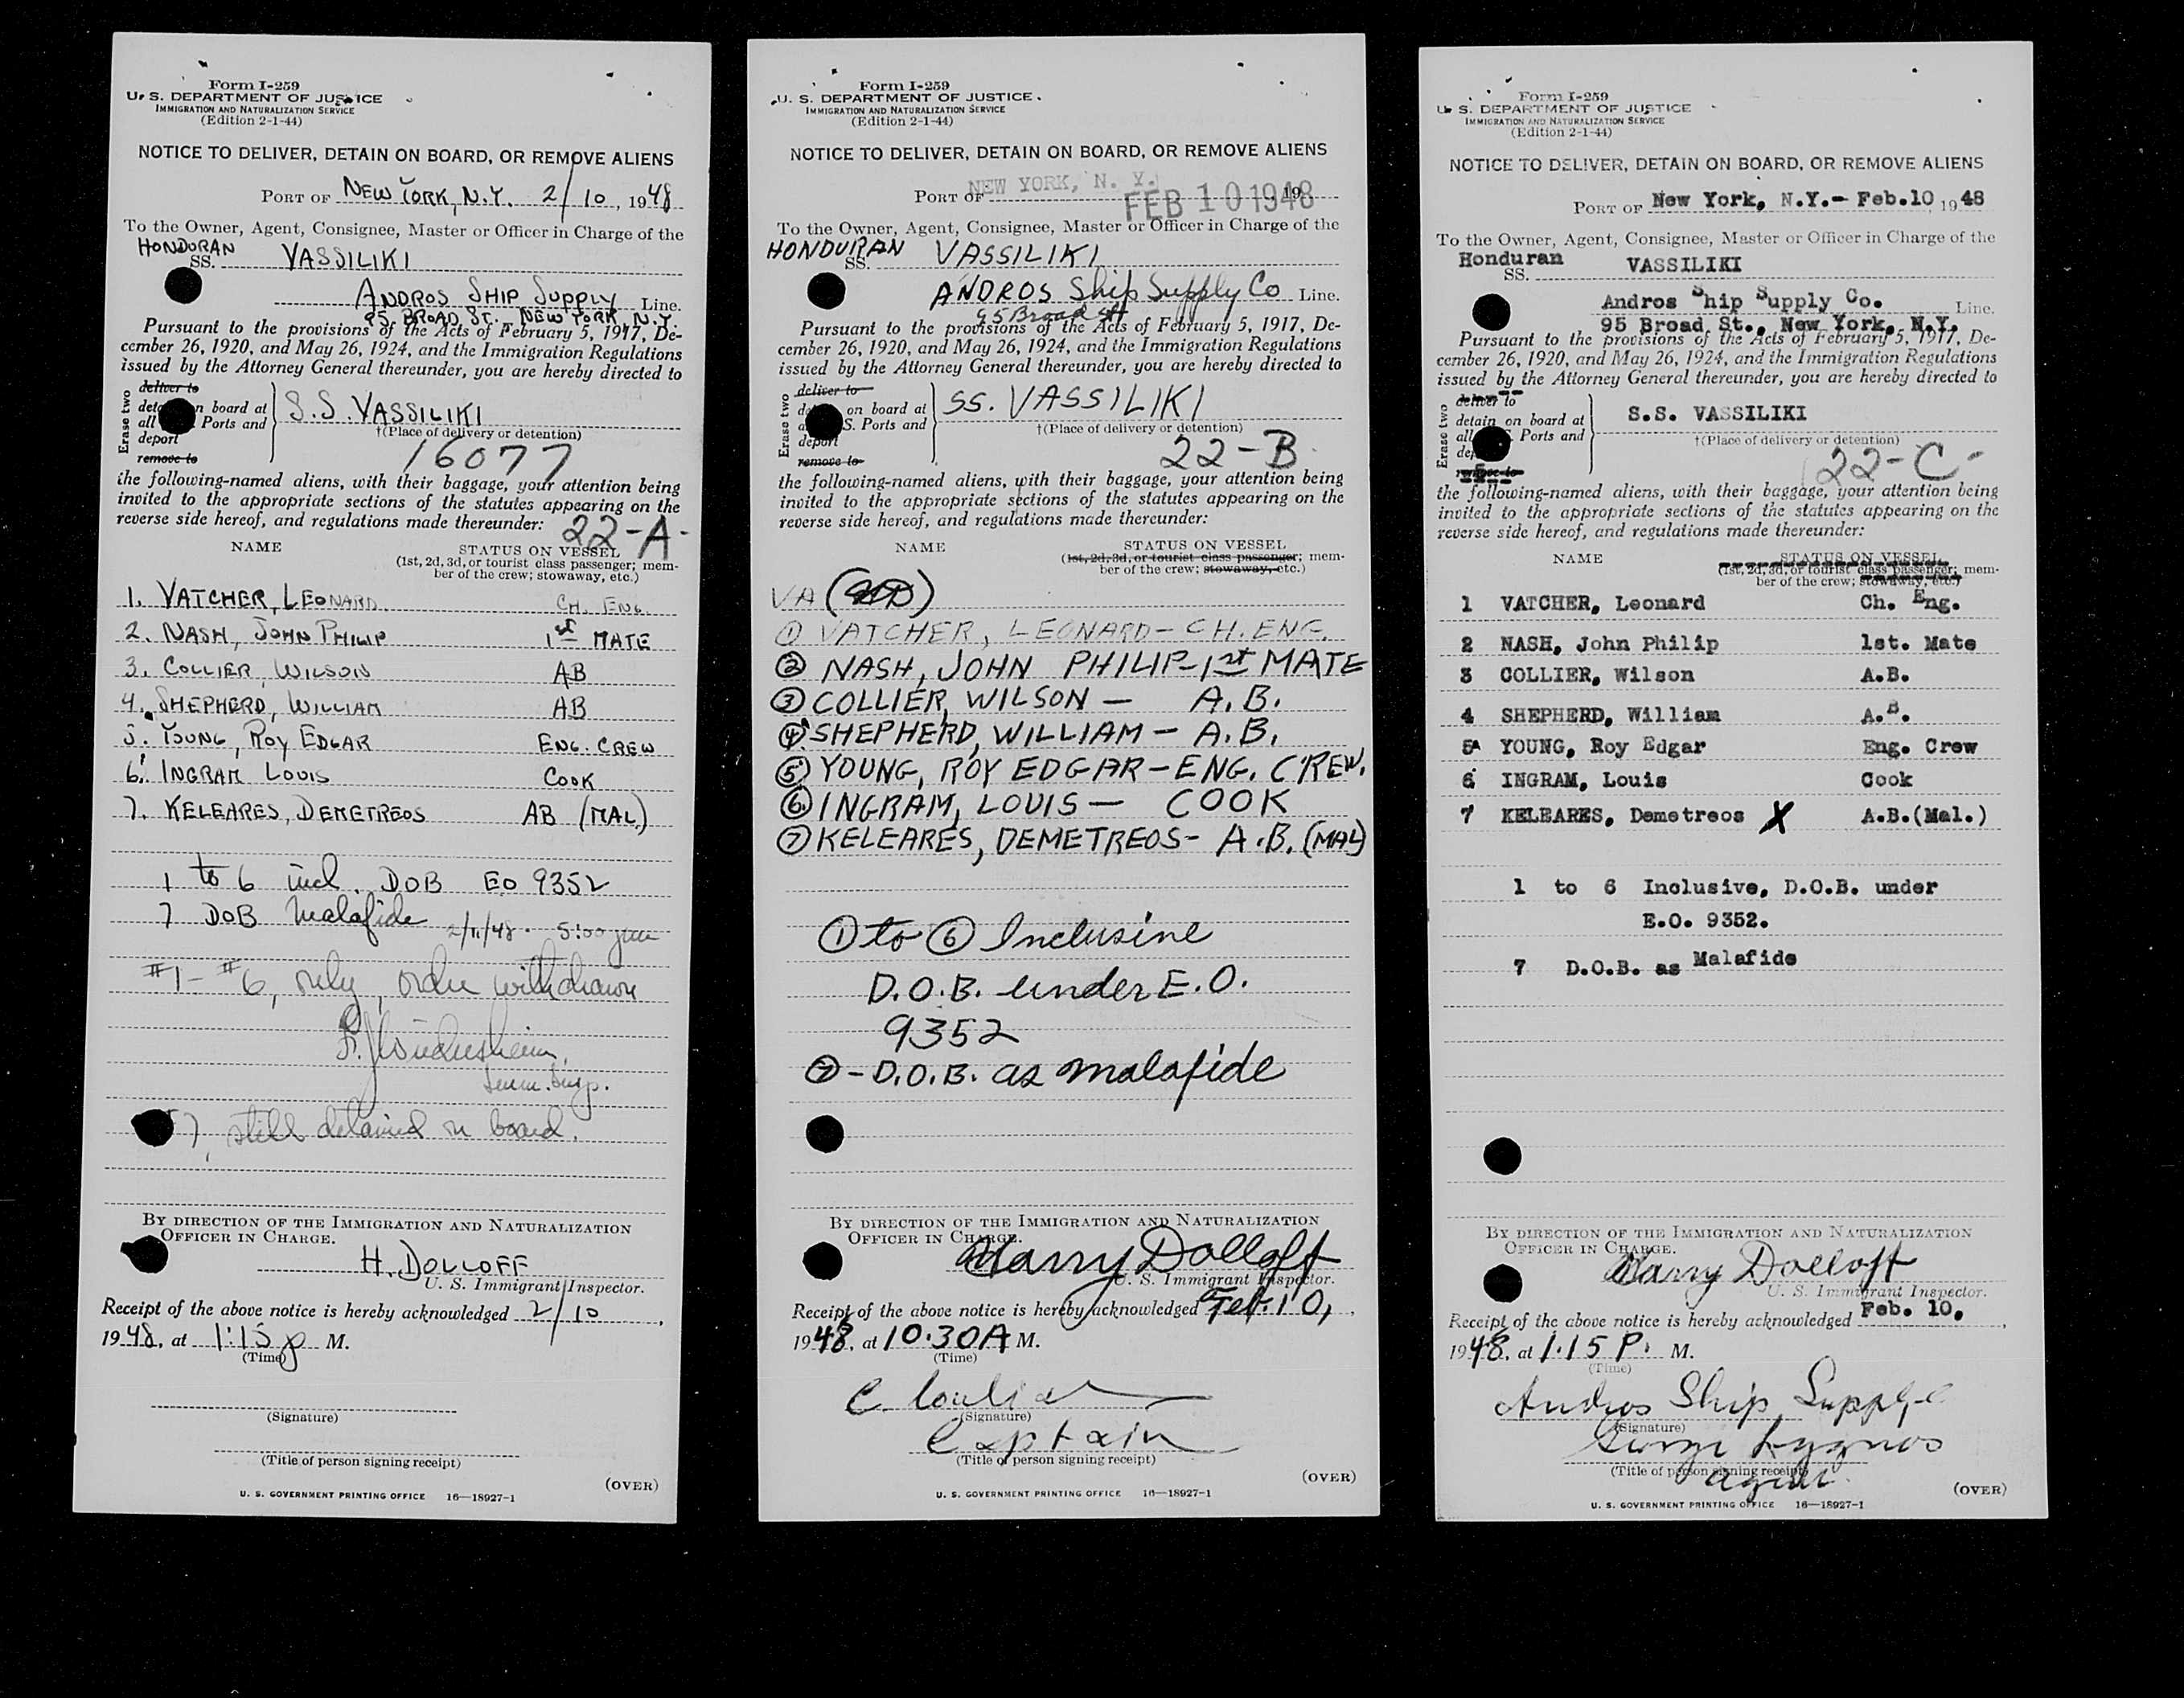 Form I-259
U. S. DEPARTMENT OF JUSTICE
IMMIGRATION AND NATURALIZATION SERVICE
(Edition 2-1-44)
NOTICE TO DELIVER, DETAIN ON BOARD, OR REMOVE ALIENS
PORT OF NEW YORK, N.Y. 2/10, 1948
To the Owner, Agent, Consignee, Master or Officer in Charge of the
HONDURAN
SS. VASSILIKI
ANDROS SHIP SUPPLY Line.
95 BROAD ST. NEW YORK N.Y.
Pursuant to the provisions of the Acts of February 5, 1917, De-
cember 26, 1920, and May 26, 1924, and the Immigration Regulations
issued by the Attorney General thereunder, you are hereby directed to
Erase two
deliver to
detain on board at
all Ports and
deport
remove to
S.S. VASSILIKI
†(Place of delivery or detention)
16077
the following-named aliens, with their baggage, your attention being
invited to the appropriate sections of the statutes appearing on the
reverse side hereof, and regulations made thereunder:
22-A-
NAME STATUS ON VESSEL
(1st, 2d, 3d, or tourist class passenger; mem-
ber of the crew; stowaway, etc.)
1. VATCHER, LEONARD CH. ENG.
2. NASH, JOHN PHILIP 1st MATE
3. COLLIER, WILSON AB
4. SHEPHERD, WILLIAM AB
5. YOUNG, ROY EDGAR ENG. CREW
6. INGRAM LOUIS COOK
7. KELEARES, DEMETREOS AB (MAL)
1 to 6 incl. DOB EO 9352
7 DOB Malafide
2/11/48 - 5:00 pm
#1 - #6, only, order withdrawn
Imm. Insp.
7, still detained on board.
BY DIRECTION OF THE IMMIGRATION AND NATURALIZATION
OFFICER IN CHARGE.
H. DOLLOFF
U. S. Immigrant Inspector.
Receipt of the above notice is hereby acknowledged 2/10,
1948, at 1:15 p M.
(Time)
(Signature)
(Title of person signing receipt)
(OVER)
U. S. GOVERNMENT PRINTING OFFICE 16—18927-1
Form I-259
U. S. DEPARTMENT OF JUSTICE
IMMIGRATION AND NATURALIZATION SERVICE
(Edition 2-1-44)
NOTICE TO DELIVER, DETAIN ON BOARD, OR REMOVE ALIENS
PORT OF NEW YORK, N. Y. FEB 10 1948 19
To the Owner, Agent, Consignee, Master or Officer in Charge of the
HONDURAN
SS. VASSILIKI
ANDROS Ship Supply Co Line.
95 Broad St
Pursuant to the provisions of the Acts of February 5, 1917, De-
cember 26, 1920, and May 26, 1924, and the Immigration Regulations
issued by the Attorney General thereunder, you are hereby directed to
Erase two
deliver to
on board at
S. Ports and
deport
remove to
SS. VASSILIKI
†(Place of delivery or detention)
22-B-
the following-named aliens, with their baggage, your attention being
invited to the appropriate sections of the statutes appearing on the
reverse side hereof, and regulations made thereunder:
NAME STATUS ON VESSEL
(1st, 2d, 3d, or tourist class passenger; mem-
ber of the crew; stowaway, etc.)
VA
① VATCHER, LEONARD - CH. ENG.
② NASH, JOHN PHILIP - 1st MATE
③ COLLIER, WILSON — A.B.
④ SHEPHERD, WILLIAM — A.B.
⑤ YOUNG, ROY EDGAR - ENG. CREW.
⑥ INGRAM, LOUIS — COOK
⑦ KELEARES, DEMETREOS - A.B. (MAL)
① to ⑥ Inclusive
D.O.B. under E.O.
9352
⑦ - D.O.B. as malafide
BY DIRECTION OF THE IMMIGRATION AND NATURALIZATION
OFFICER IN CHARGE.
Harry Dolloff
U. S. Immigrant Inspector.
Receipt of the above notice is hereby acknowledged Feb. 10,
1948, at 10:30 A M.
(Time)
(Signature)
Captain
(Title of person signing receipt)
(OVER)
U. S. GOVERNMENT PRINTING OFFICE 16—18927-1
Form I-259
U. S. DEPARTMENT OF JUSTICE
IMMIGRATION AND NATURALIZATION SERVICE
(Edition 2-1-44)
NOTICE TO DELIVER, DETAIN ON BOARD, OR REMOVE ALIENS
PORT OF New York, N.Y.- Feb.10 1948
To the Owner, Agent, Consignee, Master or Officer in Charge of the
Honduran
SS. VASSILIKI
Andros Ship Supply Co. Line.
95 Broad St., New York, N.Y.
Pursuant to the provisions of the Acts of February 5, 1917, De-
cember 26, 1920, and May 26, 1924, and the Immigration Regulations
issued by the Attorney General thereunder, you are hereby directed to
Erase two
deliver to
detain on board at
all Ports and
remove to
S.S. VASSILIKI
†(Place of delivery or detention)
22-C-
the following-named aliens, with their baggage, your attention being
invited to the appropriate sections of the statutes appearing on the
reverse side hereof, and regulations made thereunder:
NAME STATUS ON VESSEL
(1st, 2d, 3d, or tourist class passenger; mem-
ber of the crew; stowaway, etc.)
1 VATCHER, Leonard Ch. Eng.
2 NASH, John Philip 1st. Mate
3 COLLIER, Wilson A.B.
4 SHEPHERD, William A.B.
5 YOUNG, Roy Edgar Eng. Crew
6 INGRAM, Louis Cook
7 KELEARES, Demetreos X A.B.(Mal.)
1 to 6 Inclusive, D.O.B. under
E.O. 9352.
7 D.O.B. as Malafide
BY DIRECTION OF THE IMMIGRATION AND NATURALIZATION
OFFICER IN CHARGE.
Harry Dolloff
U. S. Immigrant Inspector.
Receipt of the above notice is hereby acknowledged Feb. 10,
1948, at 1.15 P. M.
(Time)
Andros Ship Supply
(Signature)
(Title of person signing receipt)
agent
(OVER)
U. S. GOVERNMENT PRINTING OFFICE 16—18927-1